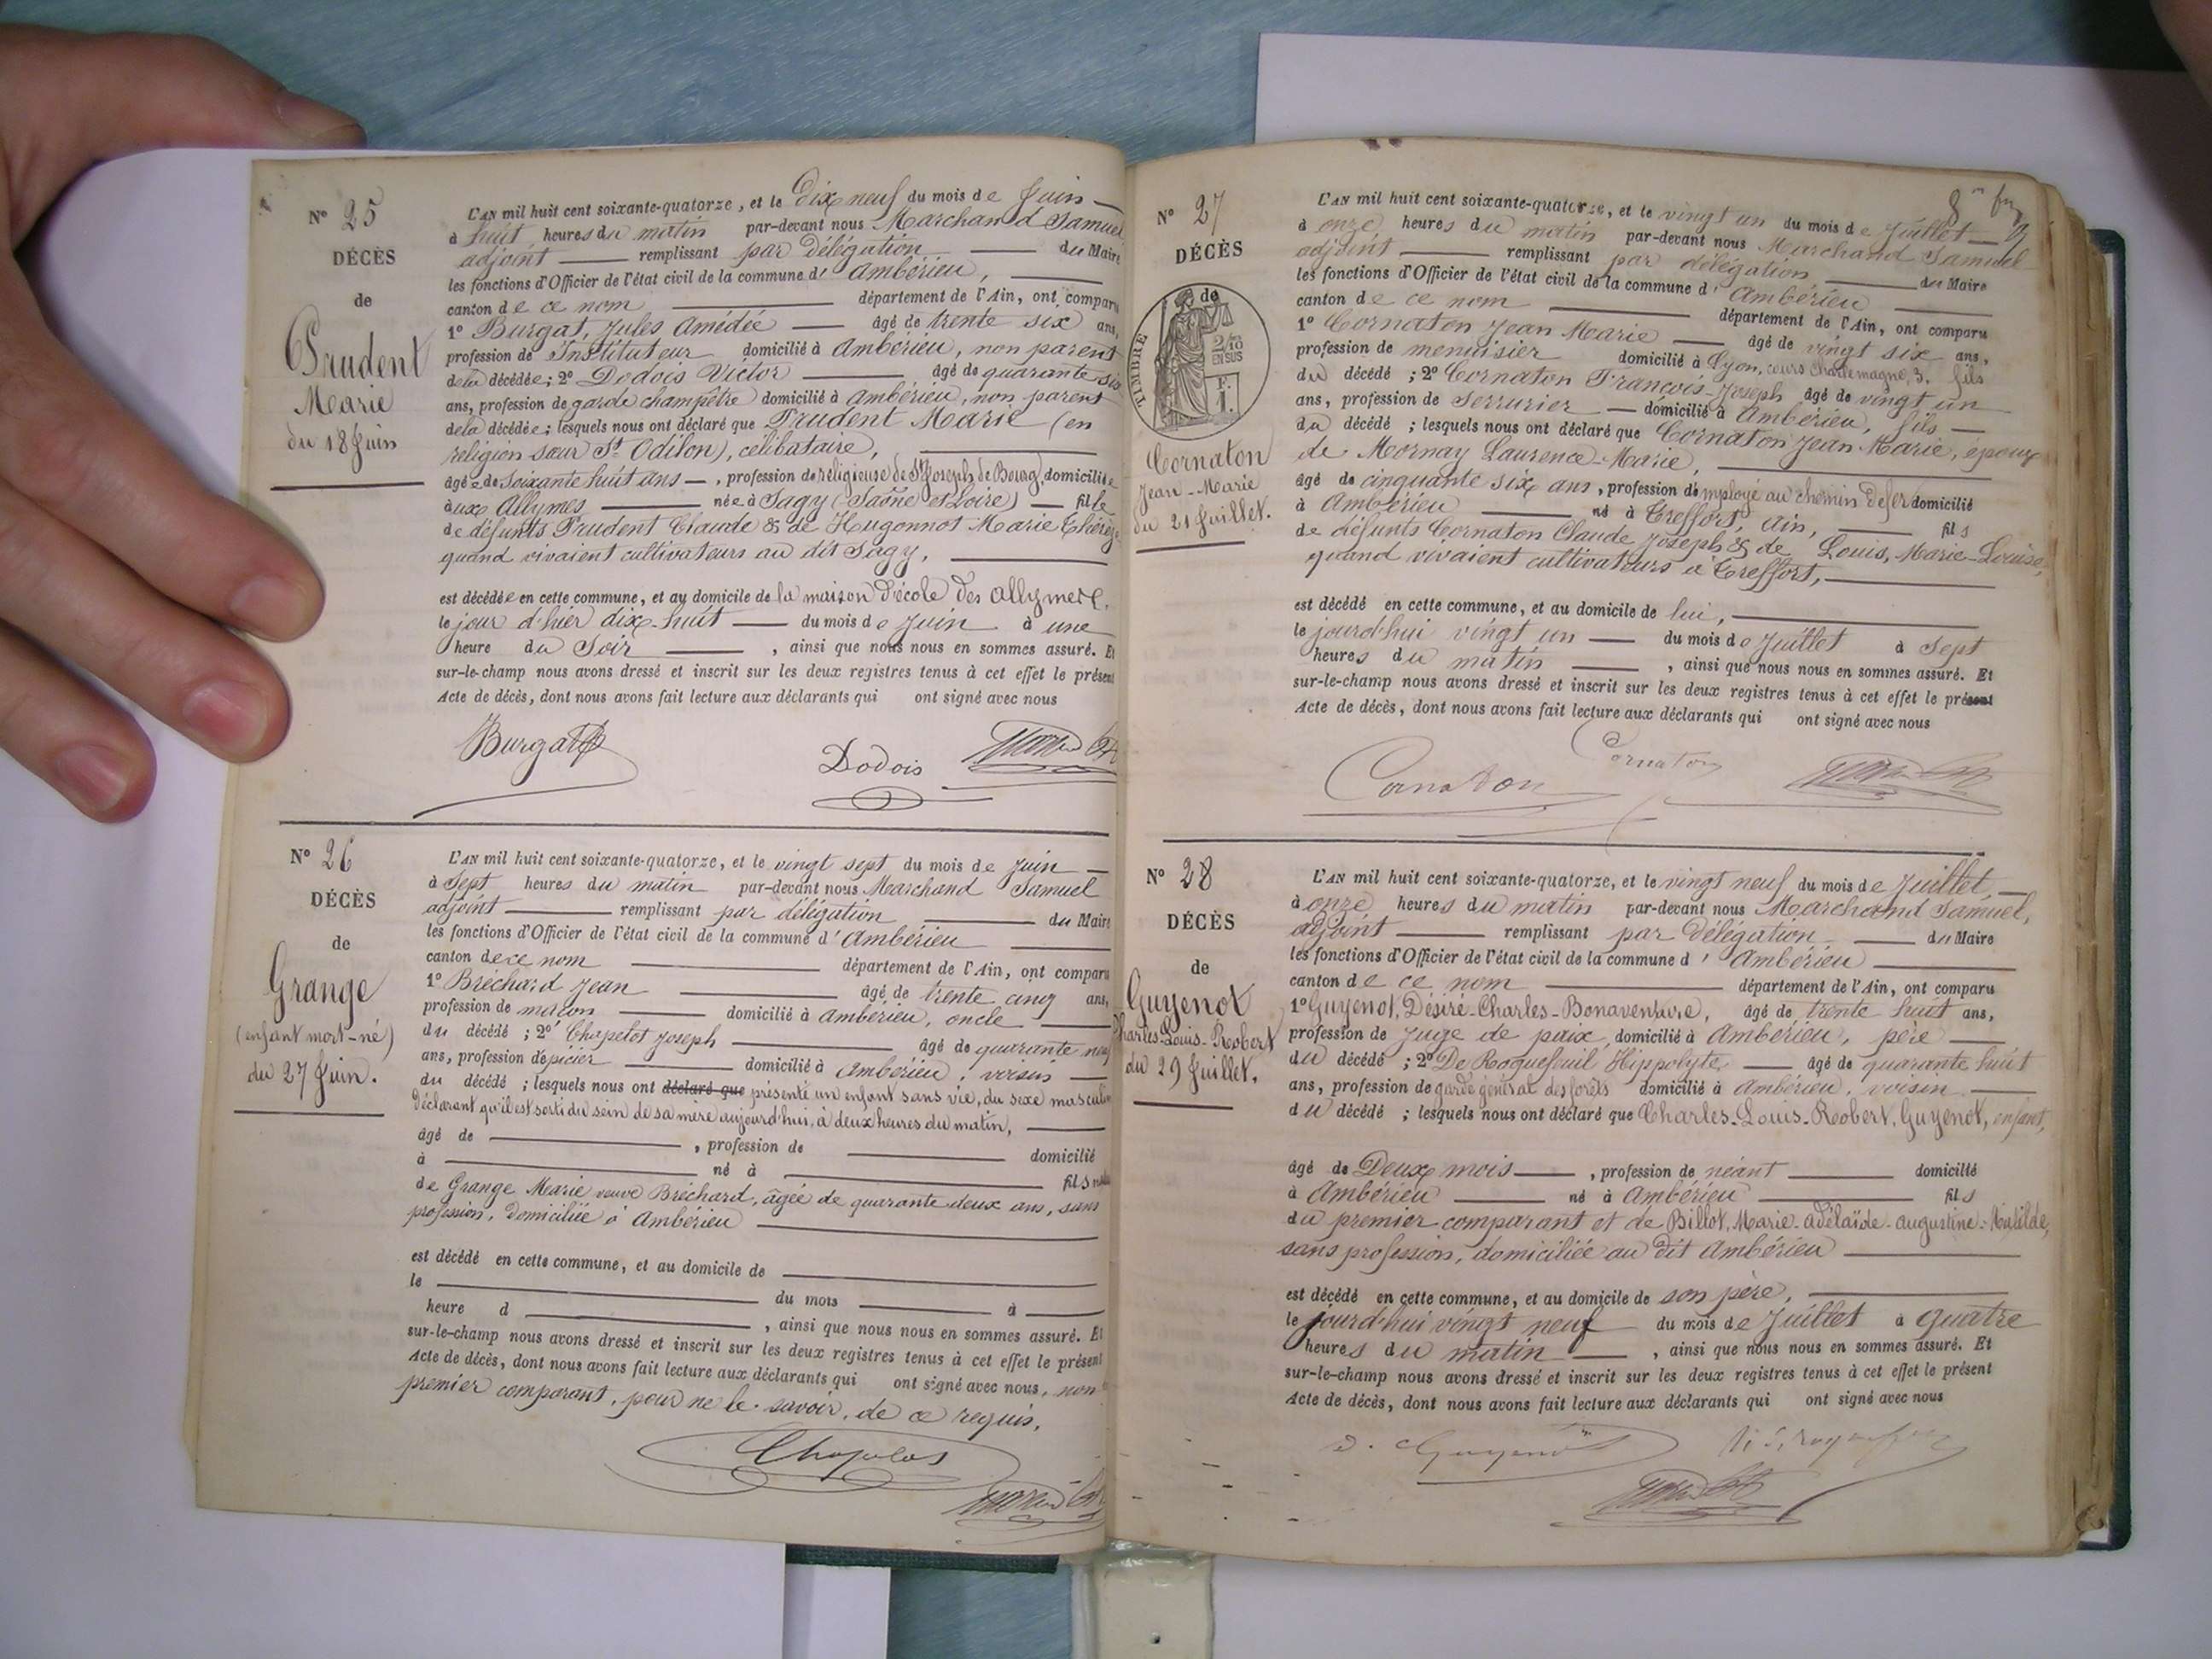 N° 25
DÉCÈS
de
Prudent
Marie
du 18 Juin
L'AN mil huit cent soixante-quatorze, et le Dix neuf du mois de Juin —
à huit heures du matin par-devant nous Marchand Samuel
adjoint — remplissant par délégation — du Maire
les fonctions d'Officier de l'état civil de la commune d' Ambérieu, —
canton de ce nom — département de l'Ain, ont comparu
1° Burgat, Jules Amédée — âgé de trente six ans,
profession de Instituteur domicilié à Ambérieu, non parent
de la décédée; 2° Dodois Victor — âgé de quarante six
ans, profession de garde champêtre domicilié à Ambérieu, non parent
de la décédée; lesquels nous ont déclaré que Prudent Marie (en
religion sœur St Odilon), célibataire, —
âgée de Soixante huit ans —, profession de religieuse de St Joseph de Bourg, domiciliée
aux Allymes — née à Sagy (Saône et Loire) — fille
de défunts Prudent Claude & de Hugonnot Marie Thérèze
quand vivaient cultivateurs au dit Sagy, —
est décédée en cette commune, et au domicile de la maison d'école des Allymes,
le jour d'hier dix-huit — du mois de Juin à une
heure du Soir —, ainsi que nous nous en sommes assuré. Et
sur-le-champ nous avons dressé et inscrit sur les deux registres tenus à cet effet le présent
Acte de décès, dont nous avons fait lecture aux déclarants qui ont signé avec nous
Burgat
Dodois
N° 26
DÉCÈS
de
Grange
(enfant mort-né)
du 27 Juin.
L'AN mil huit cent soixante-quatorze, et le vingt sept du mois de Juin —
à Sept heures du matin par-devant nous Marchand Samuel
adjoint — remplissant par délégation — du Maire
les fonctions d'Officier de l'état civil de la commune d' Ambérieu —
canton de ce nom — département de l'Ain, ont comparu
1° Bréchard Jean — âgé de trente cinq ans,
profession de maçon — domicilié à Ambérieu, oncle —
du décédé; 2° Chapelot Joseph — âgé de quarante neuf
ans, profession d'épicier — domicilié à Ambérieu, voisin —
du décédé; lesquels nous ont déclaré que présenté un enfant sans vie, du sexe masculin
déclarant qu'il est sorti du sein de sa mère aujourd'hui, à deux heures du matin, —
âgé de —, profession de — domicilié
à — né à — fils
de Grange Marie veuve Bréchard, âgée de quarante deux ans, sans
profession, domiciliée à Ambérieu —
est décédé en cette commune, et au domicile de —
le — du mois — à —
heure d —, ainsi que nous nous en sommes assuré. Et
sur-le-champ nous avons dressé et inscrit sur les deux registres tenus à cet effet le présent
Acte de décès, dont nous avons fait lecture aux déclarants qui ont signé avec nous, non
premier comparant, pour ne le savoir, de ce requis.
N° 27
DÉCÈS
de
TIMBRE
2/10
EN SUS
F.
1.
Cornaton
Jean-Marie
du 21 Juillet.
L'AN mil huit cent soixante-quatorze, et le vingt un du mois de Juillet —
à onze heures du matin par-devant nous Marchand Samuel
adjoint — remplissant par délégation — du Maire
les fonctions d'Officier de l'état civil de la commune d' Ambérieu —
canton de ce nom — département de l'Ain, ont comparu
1° Cornaton Jean Marie — âgé de vingt six ans,
profession de menuisier domicilié à Lyon, cours Charlemagne, 3, fils
du décédé; 2° Cornaton François-Joseph âgé de vingt un
ans, profession de Serrurier — domicilié à Ambérieu, fils —
du décédé; lesquels nous ont déclaré que Cornaton Jean-Marie, époux
de Mornay Laurence-Marie, —
âgé de cinquante six ans, profession d'employé au chemin de fer domicilié
à Ambérieu — né à Treffort, Ain, — fils
de défunts Cornaton Claude Joseph & de Louis, Marie-Louise,
quand vivaient cultivateurs à Treffort, —
est décédé en cette commune, et au domicile de lui, —
le jourd'hui vingt un — du mois de Juillet à Sept
heures du matin —, ainsi que nous nous en sommes assuré. Et
sur-le-champ nous avons dressé et inscrit sur les deux registres tenus à cet effet le présent
Acte de décès, dont nous avons fait lecture aux déclarants qui ont signé avec nous
Cornaton
Cornaton
N° 28
DÉCÈS
de
Guyenot
Charles-Louis-Robert
du 29 Juillet.
L'AN mil huit cent soixante-quatorze, et le vingt neuf du mois de Juillet —
à onze heures du matin par-devant nous Marchand Samuel,
adjoint — remplissant par délégation — du Maire
les fonctions d'Officier de l'état civil de la commune d' Ambérieu —
canton de ce nom — département de l'Ain, ont comparu
1° Guyenot, Désiré-Charles-Bonaventure, âgé de trente huit ans,
profession de Juge de paix, domicilié à Ambérieu, père —
du décédé; 2° De Roquefeuil Hippolyte — âgé de quarante huit
ans, profession de garde général des forêts domicilié à Ambérieu, voisin —
du décédé; lesquels nous ont déclaré que Charles-Louis-Robert, Guyenot, enfant,
âgé de Deux mois —, profession de néant — domicilié
à Ambérieu — né à Ambérieu — fils
du premier comparant et de Billot, Marie-Adélaïde-Augustine-Matilde,
sans profession, domiciliée au dit Ambérieu —
est décédé en cette commune, et au domicile de son père, —
le jourd'hui vingt neuf du mois de Juillet à quatre
heures du matin —, ainsi que nous nous en sommes assuré. Et
sur-le-champ nous avons dressé et inscrit sur les deux registres tenus à cet effet le présent
Acte de décès, dont nous avons fait lecture aux déclarants qui ont signé avec nous
D. Guyenot